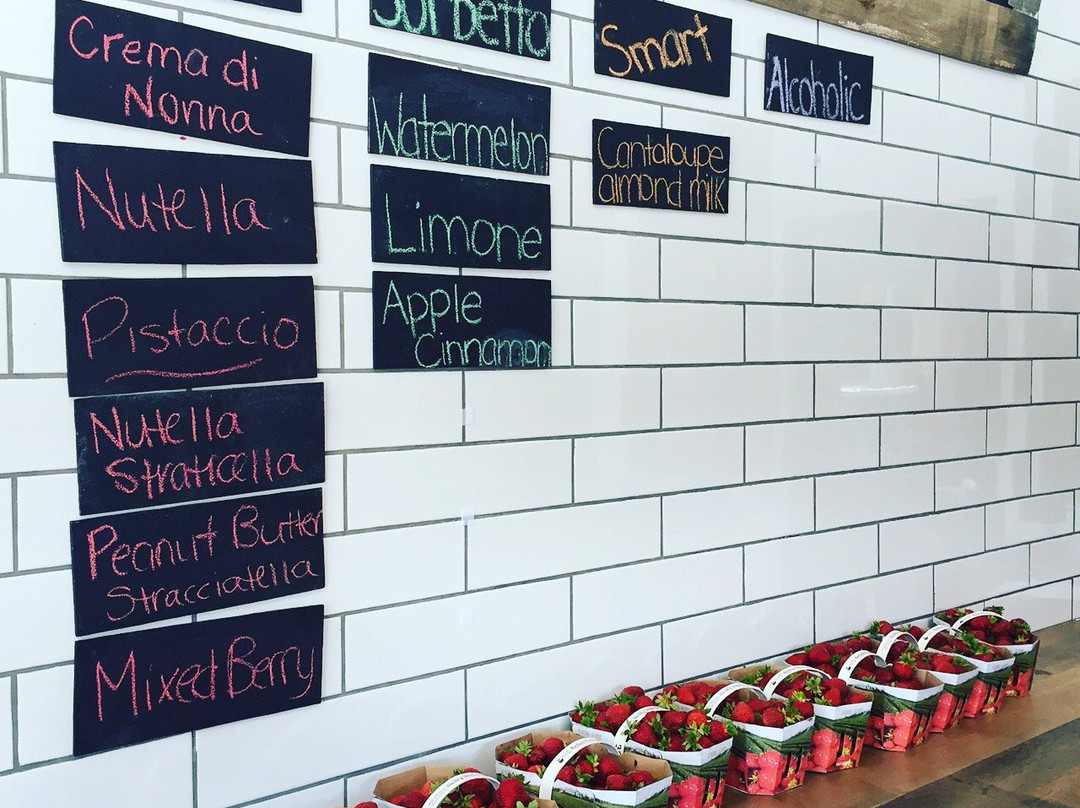 Crema di
Nonna
Nutella
Pistaccio
Nutella
Straticella
Peanut Butter
Stracciatella
Mixed Berry
Sorbetto
Watermelon
Limone
Apple
Cinnamon
Smart
Cantaloupe
almond milk
Alcoholic